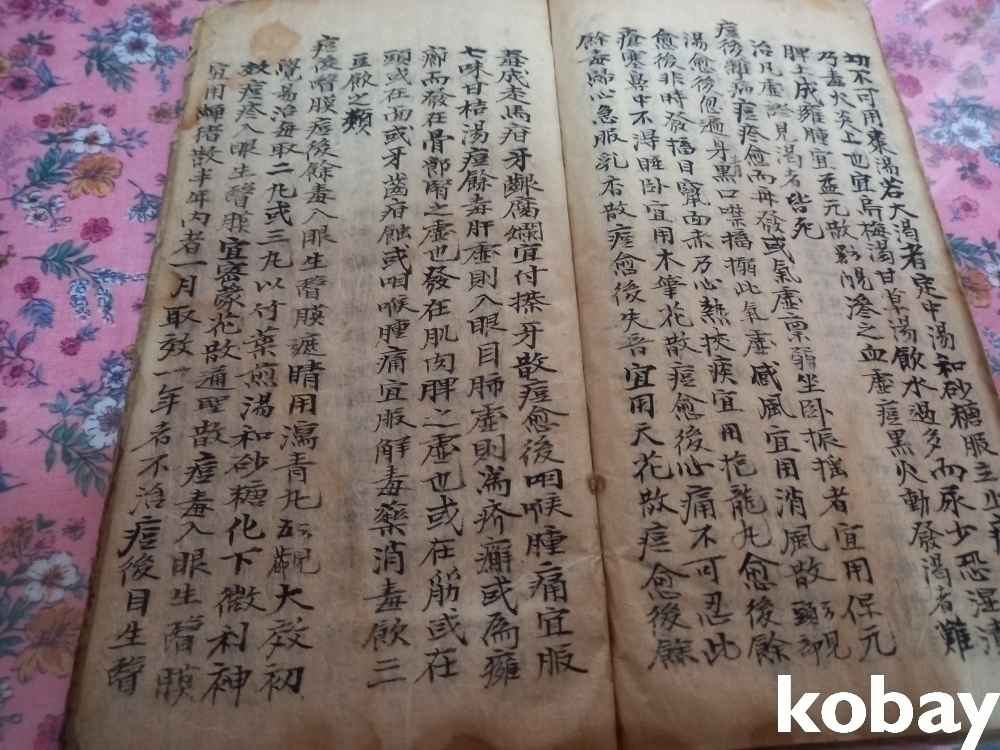 切不可用棗湯若大渴者定中湯和砂糖服立止
乃毒火炎上也宜烏梅湯甘草湯飲水過多而尿少恐濕
脾土成壅腫宜益元散 滲之血虛痘黑火動發渴者難
治凡虛 見渴者皆死
痘後雜病痘疹愈而再發或氣虛稟弱坐臥振搖者宜用保元
湯愈後偏身 黑口噤搐搦此氣虛感風宜用消風散
愈後非時發搐目竄面赤乃心熱挾痰宜用抱龍丸愈後餘
瘧寒鼻中不得睡臥宜用木筆花散痘愈後心痛不可忍此
餘毒 心急服乳香散痘愈後失音宜用天花散痘愈後餘
毒成走馬疳牙齦腐爛宜付搽牙散痘愈後咽喉腫痛宜服
七味甘桔湯痘餘毒肝虛則入眼目肺虛則為疥癬或為癰
癤而發在骨節腎之虛也發在肌肉脾之虛也或在筋或在
頭或在面或牙齒疳蝕或咽喉腫痛宜服解毒藥消毒飲三
豆飲之類
痘後瞖膜痘後餘毒入眼生瞖膜遮睛用瀉青丸 大效初
覺易治每取二丸或三丸以竹葉煎湯和砂糖化下微利神
效痘疹入眼生瞖膜宜密蒙花散通聖散痘毒入眼生瞖膜
宜用蟬 散半年內者一月取效一年者不治痘後目生瞖
kobay